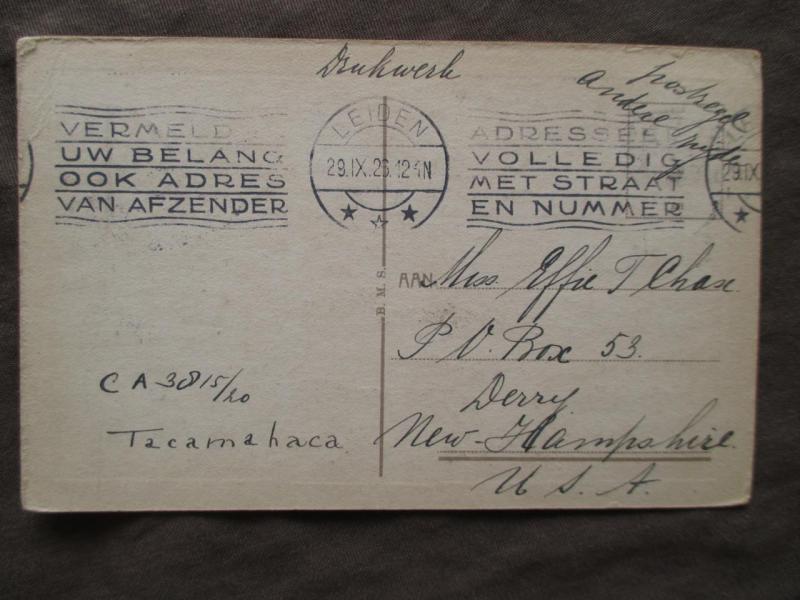 Drukwerk
postzegel
andere zijde
VERMELD
UW BELANG
OOK ADRES
VAN AFZENDER
LEIDEN
29.IX.26.12-1N
ADRESSEER
VOLLEDIG
MET STRAAT
EN NUMMER
29.IX
B. M. S.
AAN Miss Effie T Chase
P O. Box 53.
Derry
New-Hampshire.
U S. A.
CA 3815/20
Tacamahaca